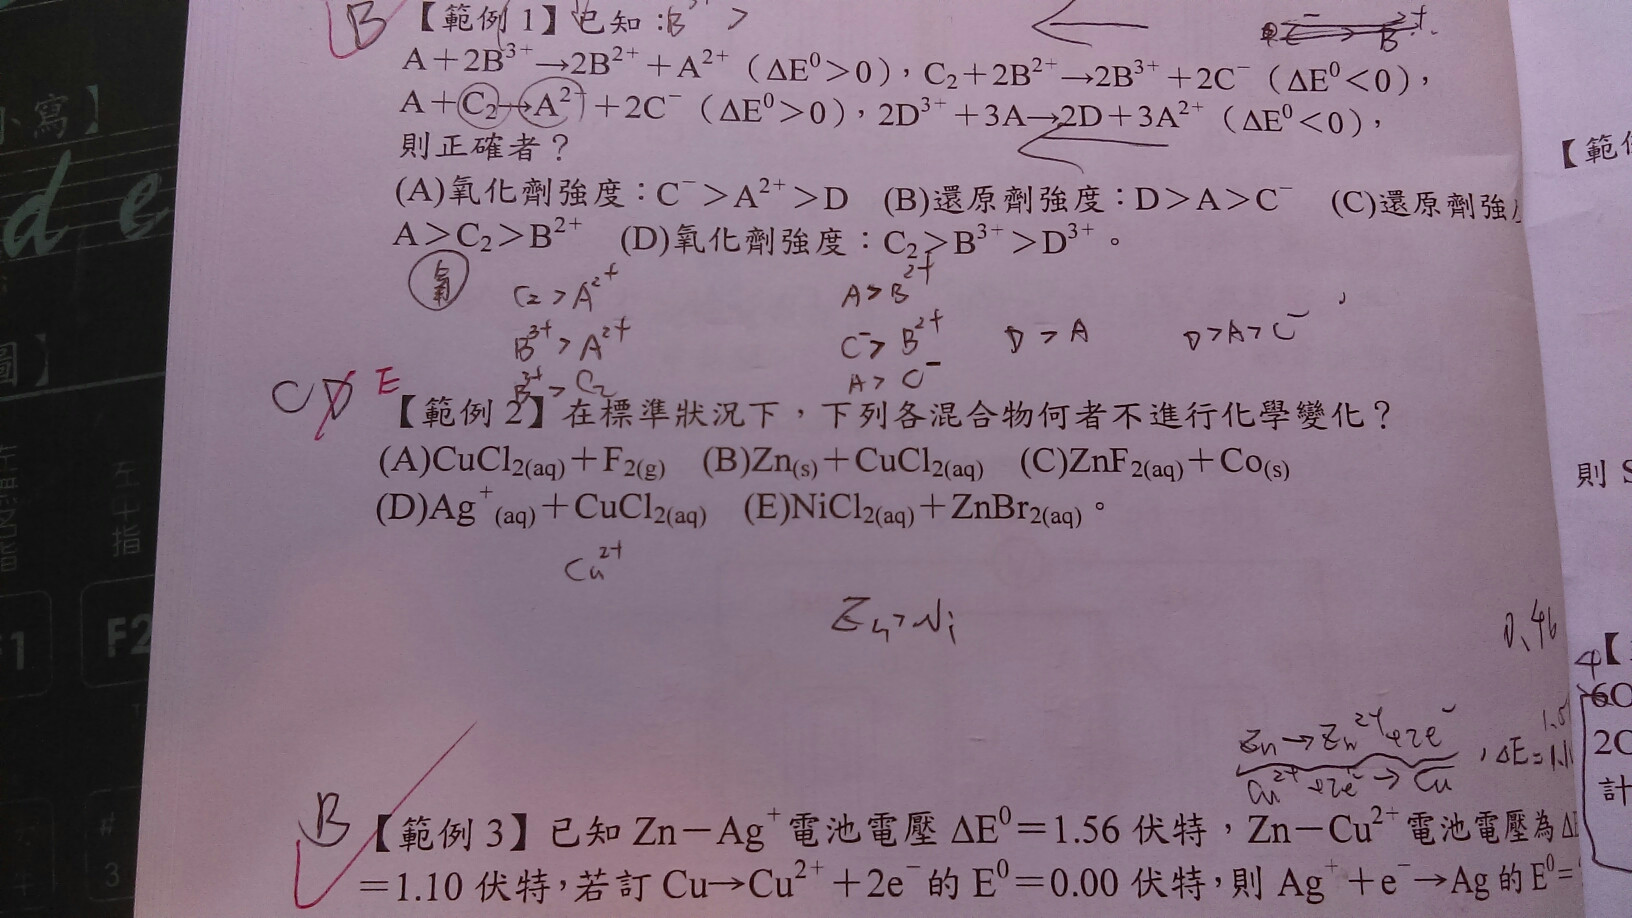 B 【範例 1】已知：B³⁺ >
A＋2B³⁺→2B²⁺＋A²⁺（ΔE⁰>0），C₂＋2B²⁺→2B³⁺＋2C⁻（ΔE⁰<0），
A＋C₂→A²⁺＋2C⁻（ΔE⁰>0），2D³⁺＋3A→2D＋3A²⁺（ΔE⁰<0），
則正確者？
(A)氧化劑強度：C⁻＞A²⁺＞D (B)還原劑強度：D＞A＞C⁻ (C)還原劑強
A＞C₂＞B²⁺ (D)氧化劑強度：C₂＞B³⁺＞D³⁺。
氧 C₂ > A²⁺ A > B²⁺
B³⁺ > A²⁺ C⁻ > B²⁺ D > A D>A>C⁻
B³⁺ > C₂ A > C⁻
C D E
【範例 2】在標準狀況下，下列各混合物何者不進行化學變化？
(A)CuCl₂(aq)＋F₂(g) (B)Zn(s)＋CuCl₂(aq) (C)ZnF₂(aq)＋Co(s)
(D)Ag⁺(aq)＋CuCl₂(aq) (E)NiCl₂(aq)＋ZnBr₂(aq)。
Cu²⁺
Zn>Ni
0.46
Zn→Zn²⁺+2e⁻
Cu²⁺+2e⁻→Cu , ΔE=1.1
B 【範例 3】已知 Zn－Ag⁺電池電壓 ΔE⁰＝1.56 伏特，Zn－Cu²⁺電池電壓為
＝1.10 伏特，若訂 Cu→Cu²⁺＋2e⁻的 E⁰＝0.00 伏特，則 Ag⁺＋e⁻→Ag 的 E⁰＝
【範
則 S
4【
6
2
計
小寫】
d e
圖】
左十指
F1
F2
#
3